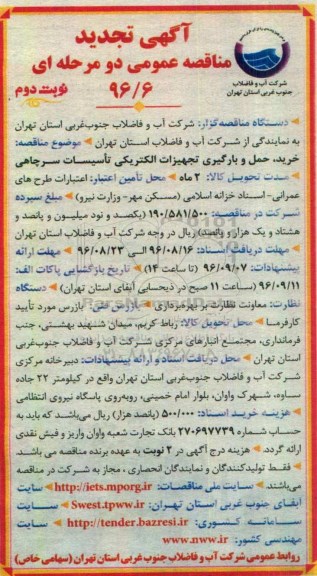 آگهی تجدید
مناقصه عمومی دو مرحله ای
۹۶/۶
نوبت دوم
شرکت آب و فاضلاب
جنوب غربی استان تهران
دستگاه مناقصه‌گزار: شرکت آب و فاضلاب جنوب‌غربی استان تهران
به نمایندگی از شرکت آب و فاضلاب استان تهران موضوع مناقصه:
خرید، حمل و بارگیری تجهیزات الکتریکی تأسیسات سرچاهی
مدت تحویل کالا: ۲ ماه محل تأمین اعتبار: اعتبارات طرح های
عمرانی- اسناد خزانه اسلامی (مسکن مهر- وزارت نیرو) مبلغ سپرده
شرکت در مناقصه: ۱۹۰/۵۸۱/۵۰۰ (یکصد و نود میلیون و پانصد و
هشتاد و یک هزار و پانصد) ریال در وجه شرکت آب و فاضلاب استان تهران
مهلت دریافت اسناد: ۹۶/۰۸/۱۶ الی ۹۶/۰۸/۲۳ مهلت ارائه
پیشنهادات: ۹۶/۰۹/۰۷ (تا ساعت ۱۴) تاریخ بازگشایی پاکات الف:
۹۶/۰۹/۱۱ (ساعت ۱۱ صبح در ذیحسابی آبفای استان تهران) دستگاه
نظارت: معاونت نظارت بر بهره‌برداری بازرس فنی: بازرس مورد تأیید
کارفرما محل تحویل کالا: رباط کریم، میدان شهید بهشتی، جنب
فرمانداری، مجتمع انبارهای مرکزی شرکت آب و فاضلاب جنوب‌غربی
استان تهران محل دریافت اسناد و ارائه پیشنهادات: دبیرخانه مرکزی
شرکت آب و فاضلاب جنوب‌غربی استان تهران واقع در کیلومتر ۲۲ جاده
ساوه، شهرک واوان، بلوار امام خمینی، روبه‌روی پاسگاه نیروی انتظامی
هزینه خرید اسناد: ۵۰۰/۰۰۰ (پانصد هزار) ریال می‌باشد که باید به
حساب شماره ۲۷۰۶۹۷۷۳۹ بانک تجارت شعبه واوان واریز و فیش نقدی
ارائه گردد. هزینه درج آگهی در ۲ نوبت به عهده برنده مناقصه می باشد.
فقط تولیدکنندگان و نمایندگان انحصاری ، مجاز به شرکت در مناقصه
می‌باشند سایت ملی مناقصات: http://iets.mporg.ir سایت
آبفای جنوب غربی استان تهران: Swest.tpww.ir سایت
سامانه کشوری: http://tender.bazresi.ir سایت
مهندسی کشور: www.nww.ir
روابط عمومی شرکت آب و فاضلاب جنوب غربی استان تهران (سهامی خاص)